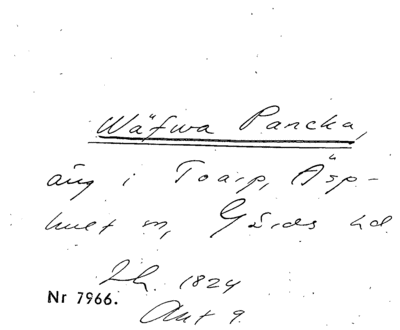 Wäfwa Pancka,
äng i Toarp, Äsp-
hult sn, Gärds hd
Lh. 1824
Nr 7966.
Akt 9.